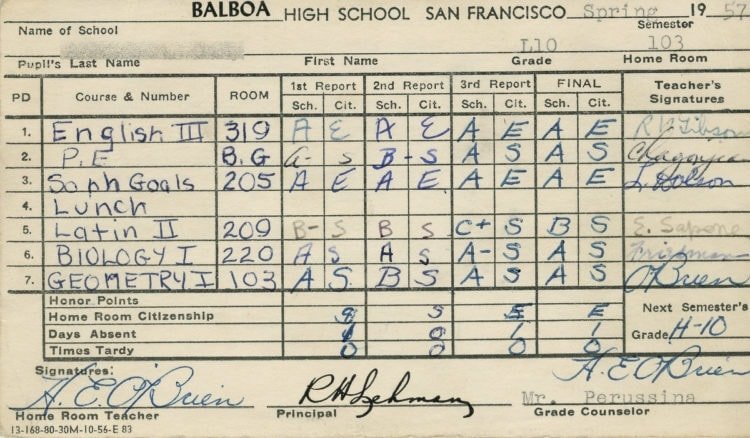 BALBOA HIGH SCHOOL SAN FRANCISCO Spring 1957
Name of School Semester
L10 103
Pupil's Last Name First Name Grade Home Room
PD Course & Number ROOM 1st Report 2nd Report 3rd Report FINAL Teacher's Signatures
Sch. Cit. Sch. Cit. Sch. Cit. Sch. Cit.
1. English III 319 A E A E A E A E R Gibson
2. P.E B.G A- S B-S A S A S
3. Soph Goals 205 A E A E A E A E
4. Lunch
5. Latin II 209 B- S B S C+ S B S E. Sapone
6. BIOLOGY I 220 A S A S A- S A S Friedman
7. GEOMETRY I 103 A S B S A S A S O'Brien
Honor Points
Home Room Citizenship S E E
Days Absent 0 1 1
Times Tardy 0 0 0 0
Next Semester's Grade H-10
Signatures:
H. E. O'Brien R H Lehman H. E. O'Brien
Mr. Perussina
Home Room Teacher Principal Grade Counselor
13-168-80-30M-10-56-E 83